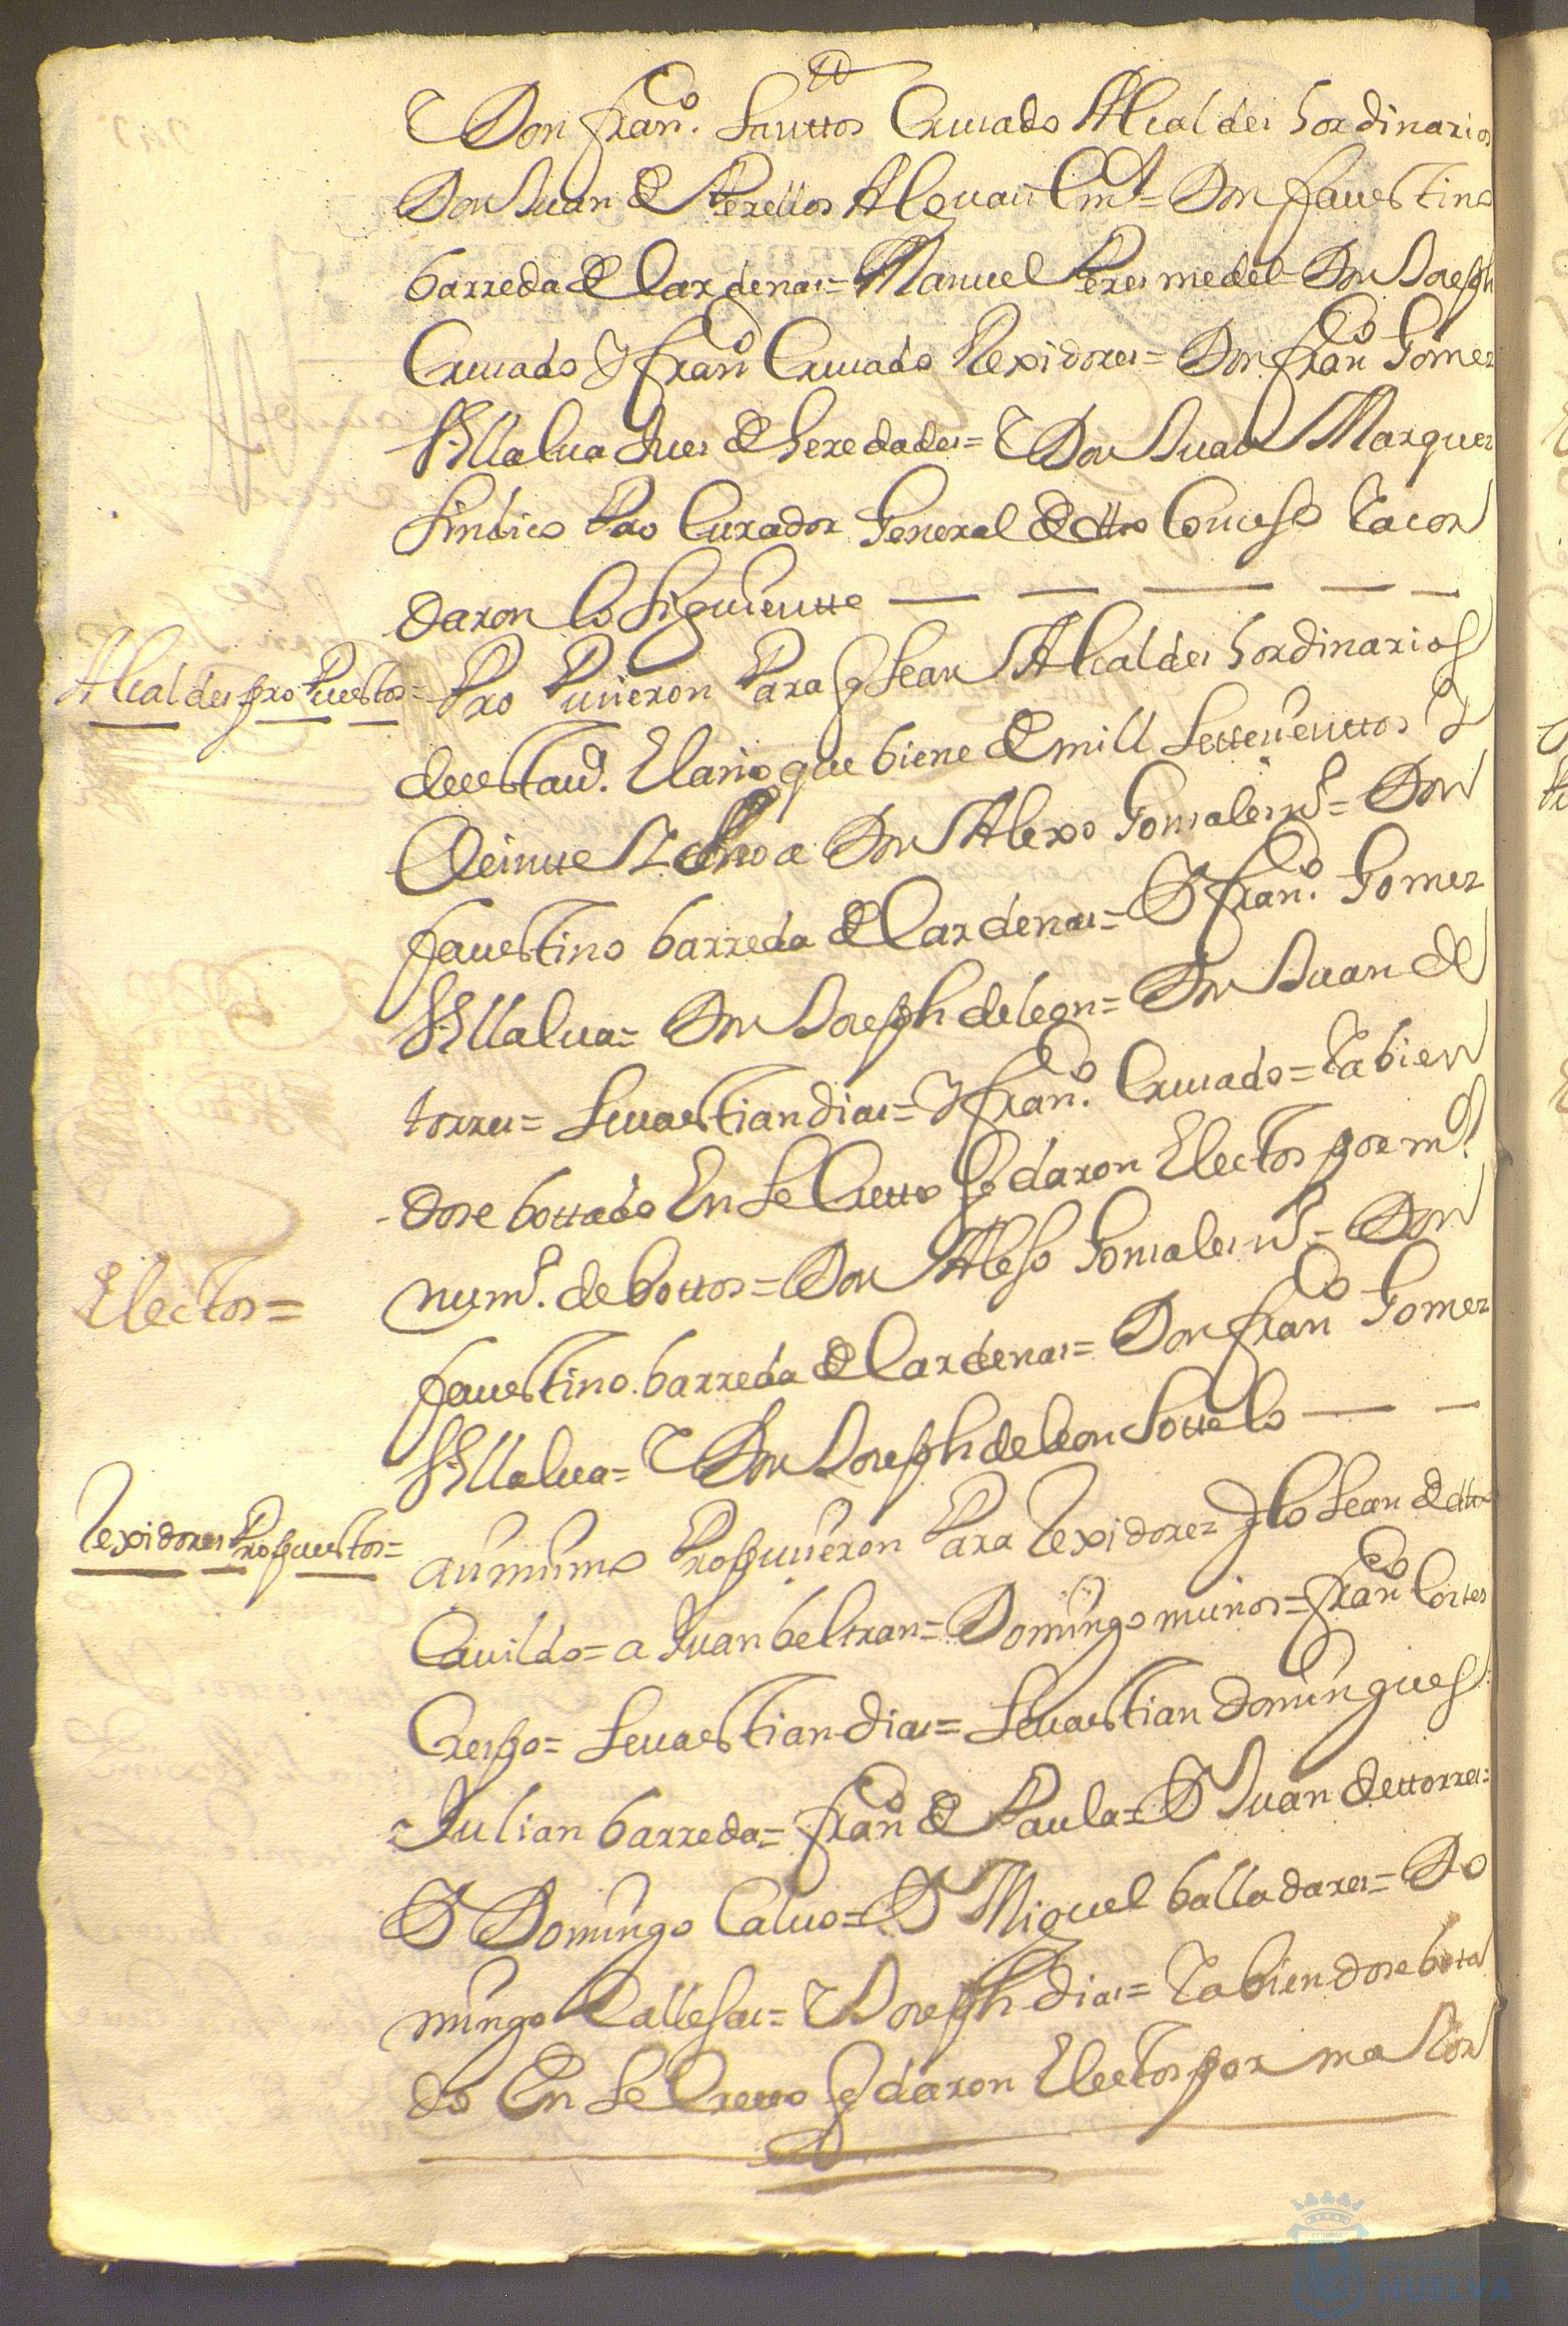 Y Don fran.co Santtos Cruzado Alcaldes hordinarios
Don Juan de Terellos Don faustino
barreda de Cardenas = Manuel Peres medel = Don Joseph
Cruzado Y fran.co Cruzado Rexidores = Don fran.co Gomez
Villalua Jues de heredades = Y Don Juan Marquez
sindico Procurador General de dho Consejo Y acor
daron lo siguientte
Alcaldes propuestos =
Pro pusieron Para q sean Alcaldes hordinarios
de esta v.a El año que biene de mill settesienttos y
Veintte a Don Alexo Gonsales = Don
faustino barreda de Cardenas = D fran.co Gomez
Villalua = Don Joseph de leon = Don Juan de
torres = Seuastian dias = Y fran.co Cruzado = Y abien
dose bottado En Secretto q daron Electos por m.r
Electos =
num.o de bottos = Don Alejo Gonsales = Don
faustino barreda de Cardenas = Don fran.co Gomez
Villalua = Y Don Joseph de leon Sottelo
Rexidores Propuestos =
asimismo Propusieron Para Rexidores q lo sean de dho
Cauildo = a Juan beltran = Domingo munos = fran.co Cortes
Crespo = Seuastian dias = Seuastian domingues
Julian barreda = fran.co de Paula = D Juan de ttorres =
D Domingo Caluo = D Miguel balladares = Do
mingo Vallesas = Y Joseph dias = Y abiendose botta
do En Secretto q daron Electos por maior
HUELVA